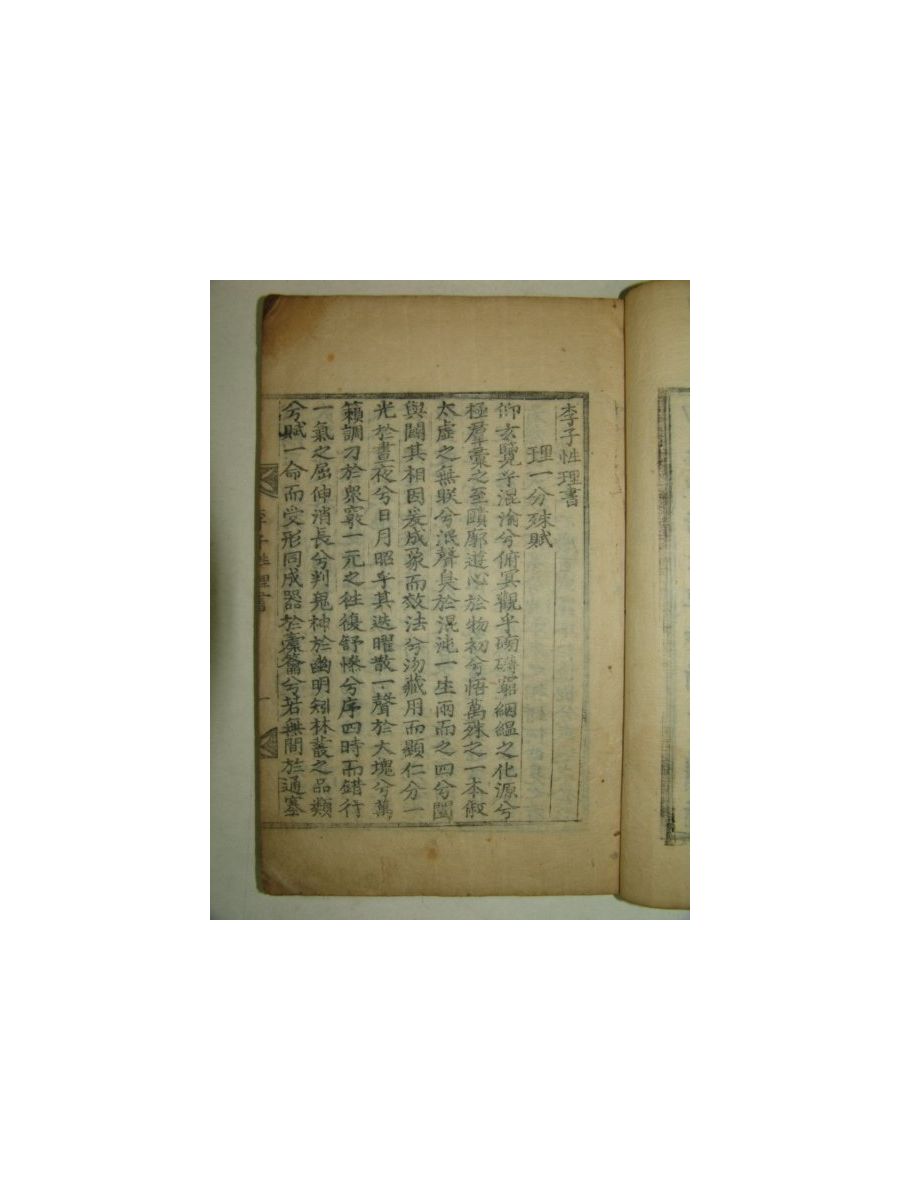 李子性理書
理一分殊賦
仰玄覽乎混淪兮俯冥觀乎磅礴窮絪縕之化源兮
極羣彙之至賾廓遊心於物初兮悟萬殊之一本俶
太虛之無眹兮泯聲臭於混沌一生兩而之四兮闔
與闢其相因爰成象而效法兮沕藏用而顯仁分一
光於晝夜兮日月昭乎其迭曜散一聲於大塊兮萬
籟調刁於衆竅一元之徃復舒慘兮序四時而錯行
一氣之屈伸消長兮判鬼神於幽明矧林叢之品類
兮賦一命而受形同成器於槖籥兮若無間於通塞
李子性理書
一